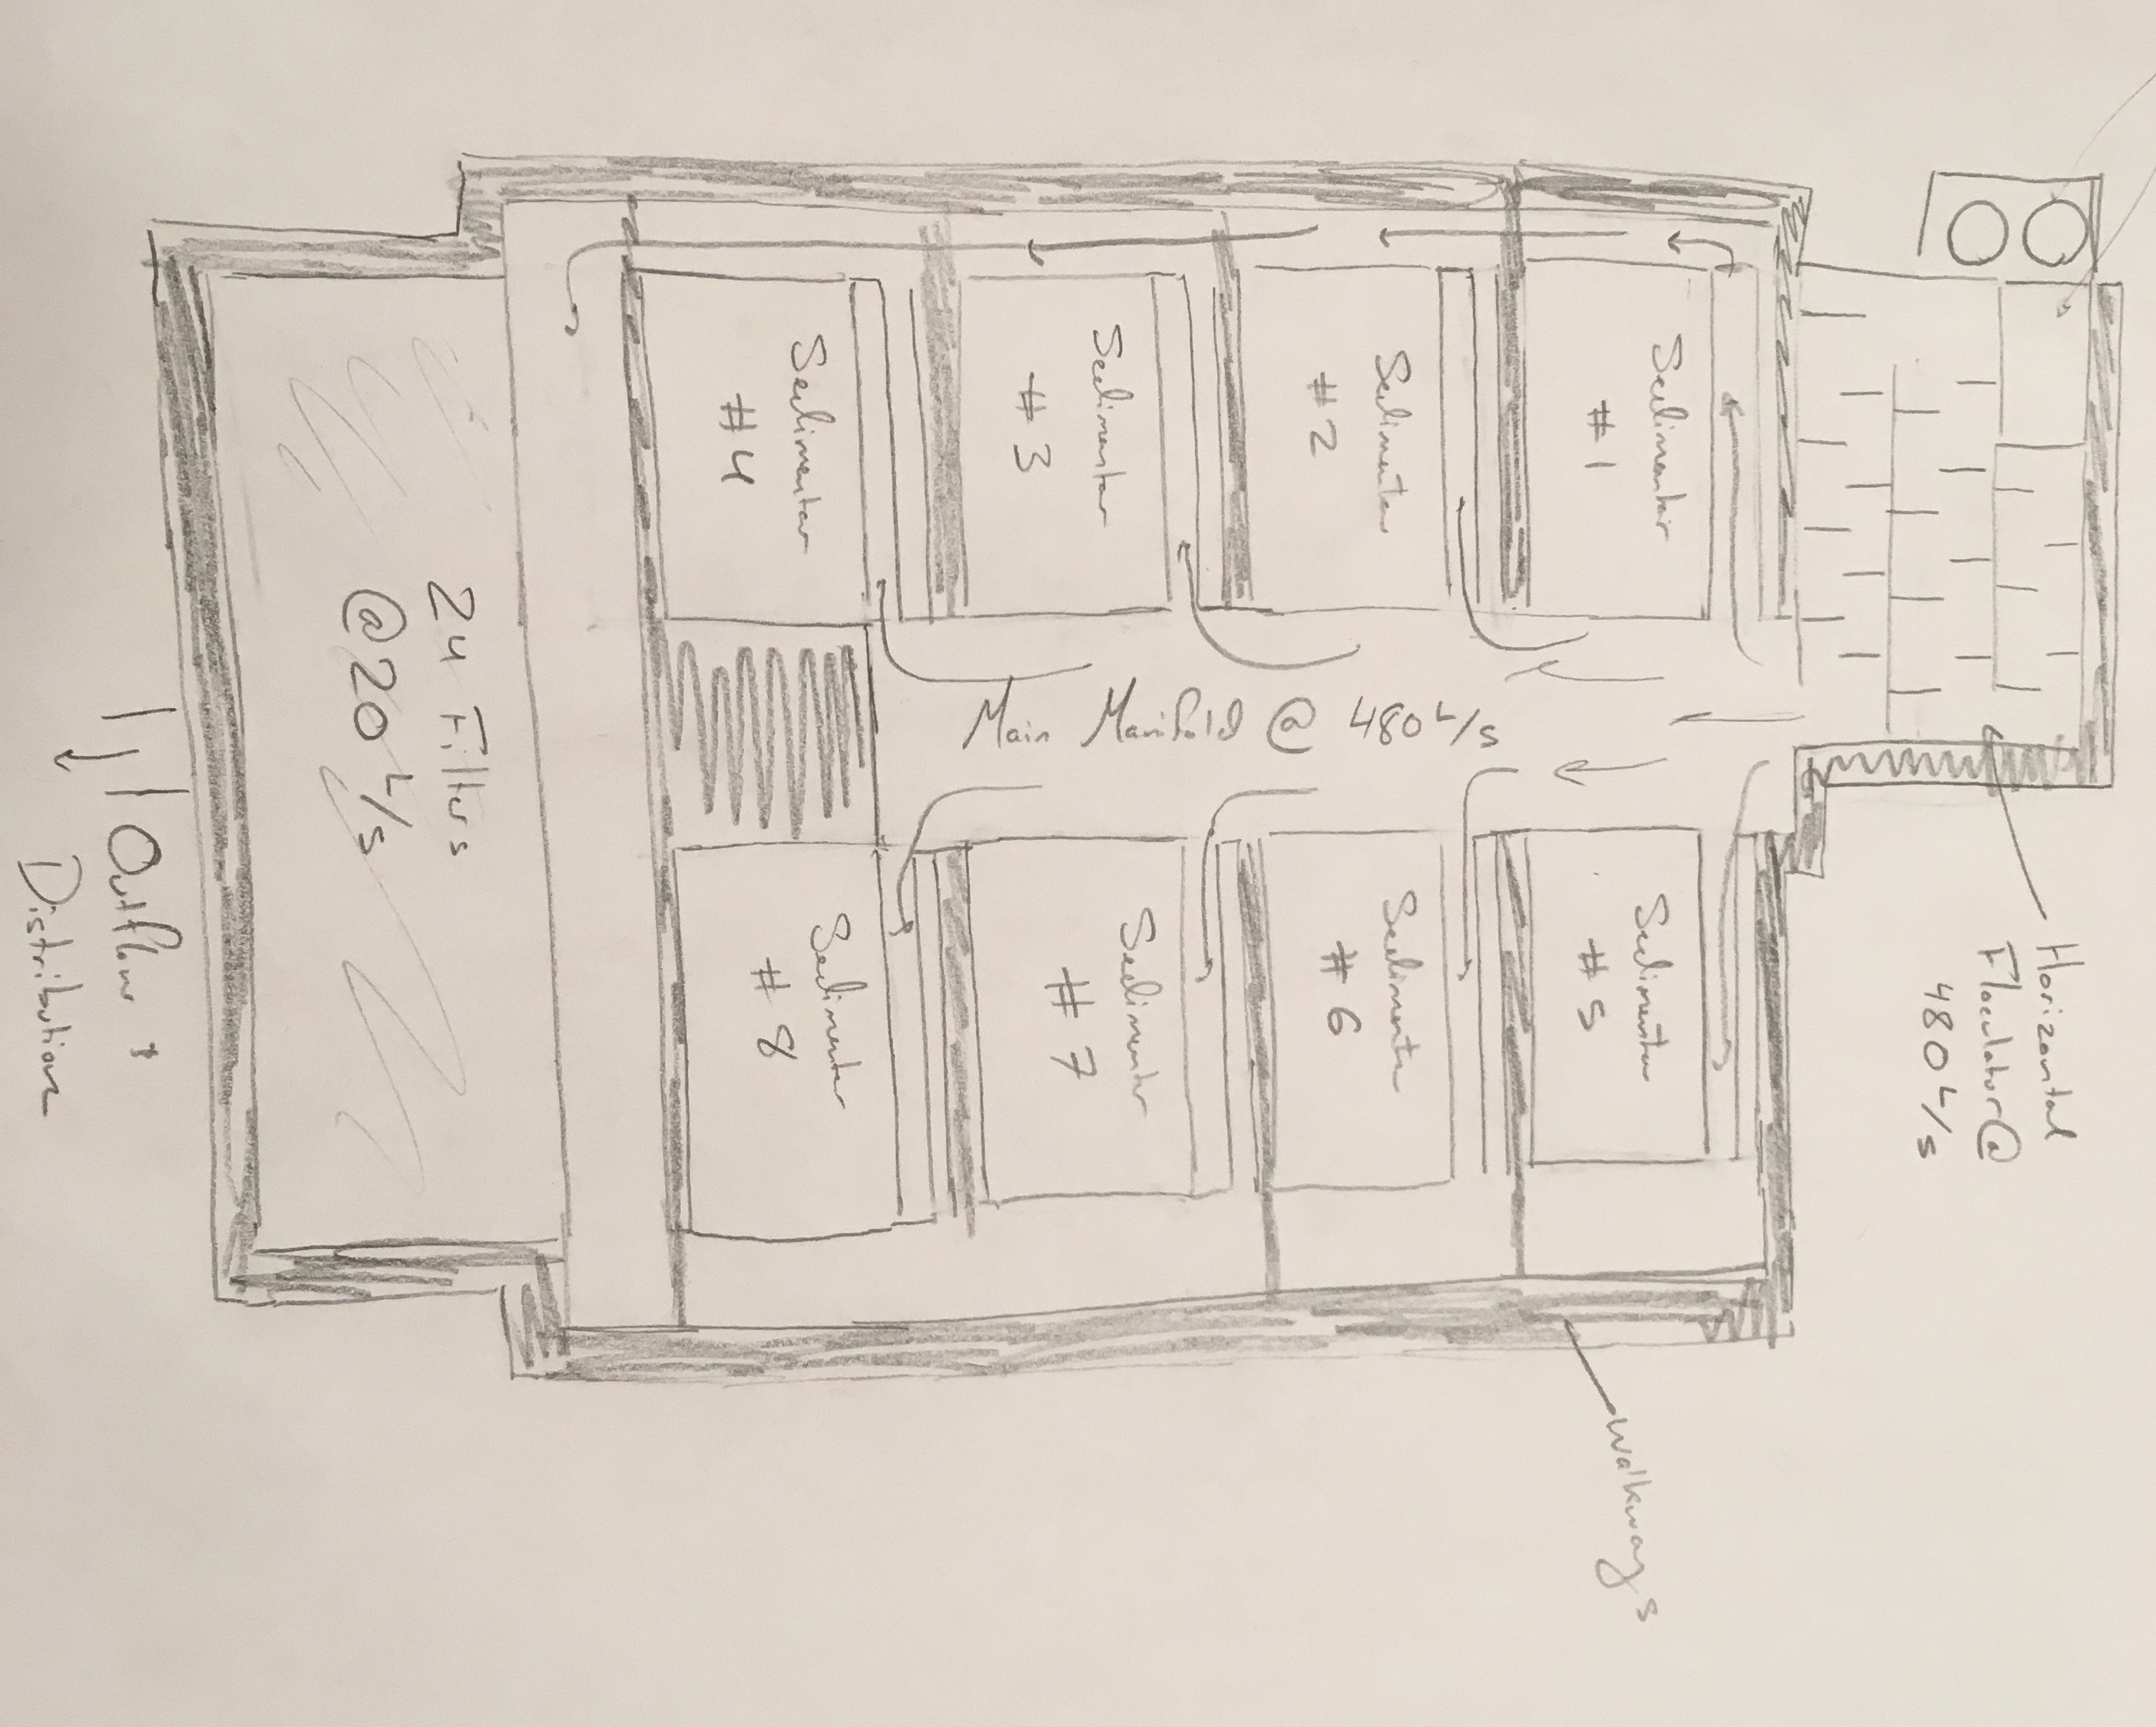 Horizontal
Floculator @
480 L/s
Sedimentor
# 1
Sedimentor
# 5
walkways
Sedimentor
# 2
Sedimentor
# 6
Main Manifold @ 480 L/s
Sedimentor
# 3
Sedimentor
# 7
Sedimentor
# 4
Sedimentor
# 8
24 Filters
@ 20 L/s
Outflow
Distribution